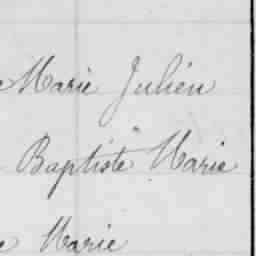 Marie Julien
Baptiste Marie
Marie